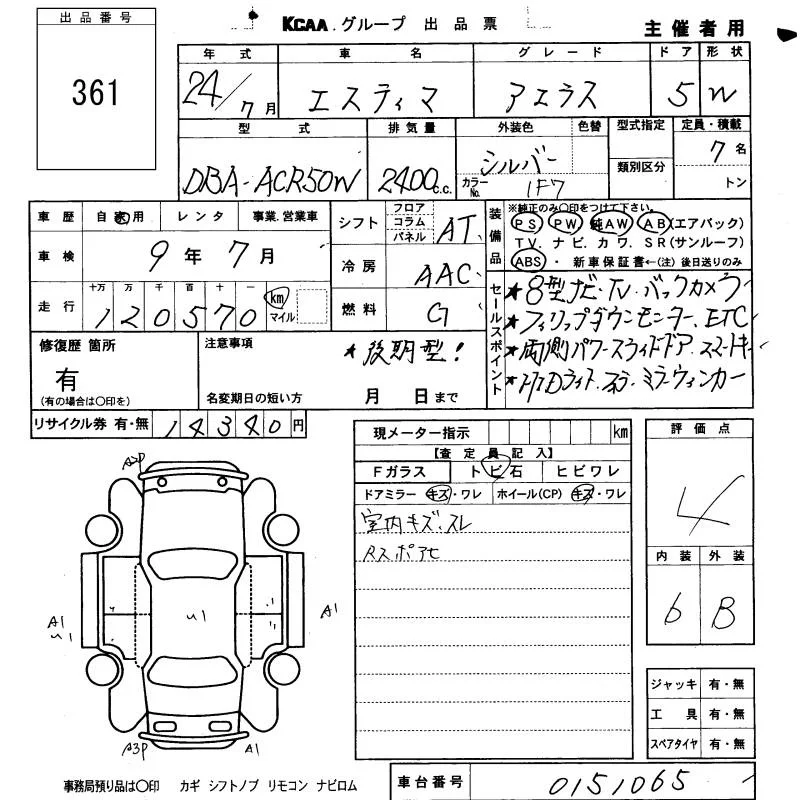 出品番号
361
KCAA グループ 出品票
主催者用
年式 車名 グレード ドア 形状
24/7月 エスティマ アエラス 5 W
型式 排気量 外装色 色替 型式指定 定員・積載
DBA-ACR50W 2400 c.c. シルバー 類別区分 7名
カラーNo. 1F7 トン
車歴 自家用 レンタ 事業.営業車
車検 9年7月
走行 十万 万 千 百 十 一
120570 km マイル
シフト フロア コラム パネル AT
冷房 AAC
燃料 G
装備品
※純正のみ〇印をつけて下さい。
PS PW 純AW AB(エアバック)
TV. ナビ. カワ. SR(サンルーフ)
ABS ・ 新車保証書←(注) 後日送りのみ
セールスポイント
★8型ナビ・TV・バックカメラ
★フィリップダウンモニター、ETC
★両側パワースライドドア.スマートキー
★HIDライト.ミラーウィンカー
修復歴 箇所
有
(有の場合は〇印を)
注意事項
★後期型!
名変期日の短い方 月 日まで
リサイクル券 有・無 14340円
現メーター指示 km
【査定員記入】
Fガラス トビ石 ヒビワレ
ドアミラー キズ・ワレ ホイール(CP) キズ・ワレ
室内キズ、スレ
評価点
4
内装 外装
6 B
A3P
A1
U1
U1
A1
A3P
A1
ジャッキ 有・無
工具 有・無
スペアタイヤ 有・無
事務局預り品は〇印 カギ シフトノブ リモコン ナビロム
車台番号 0151065